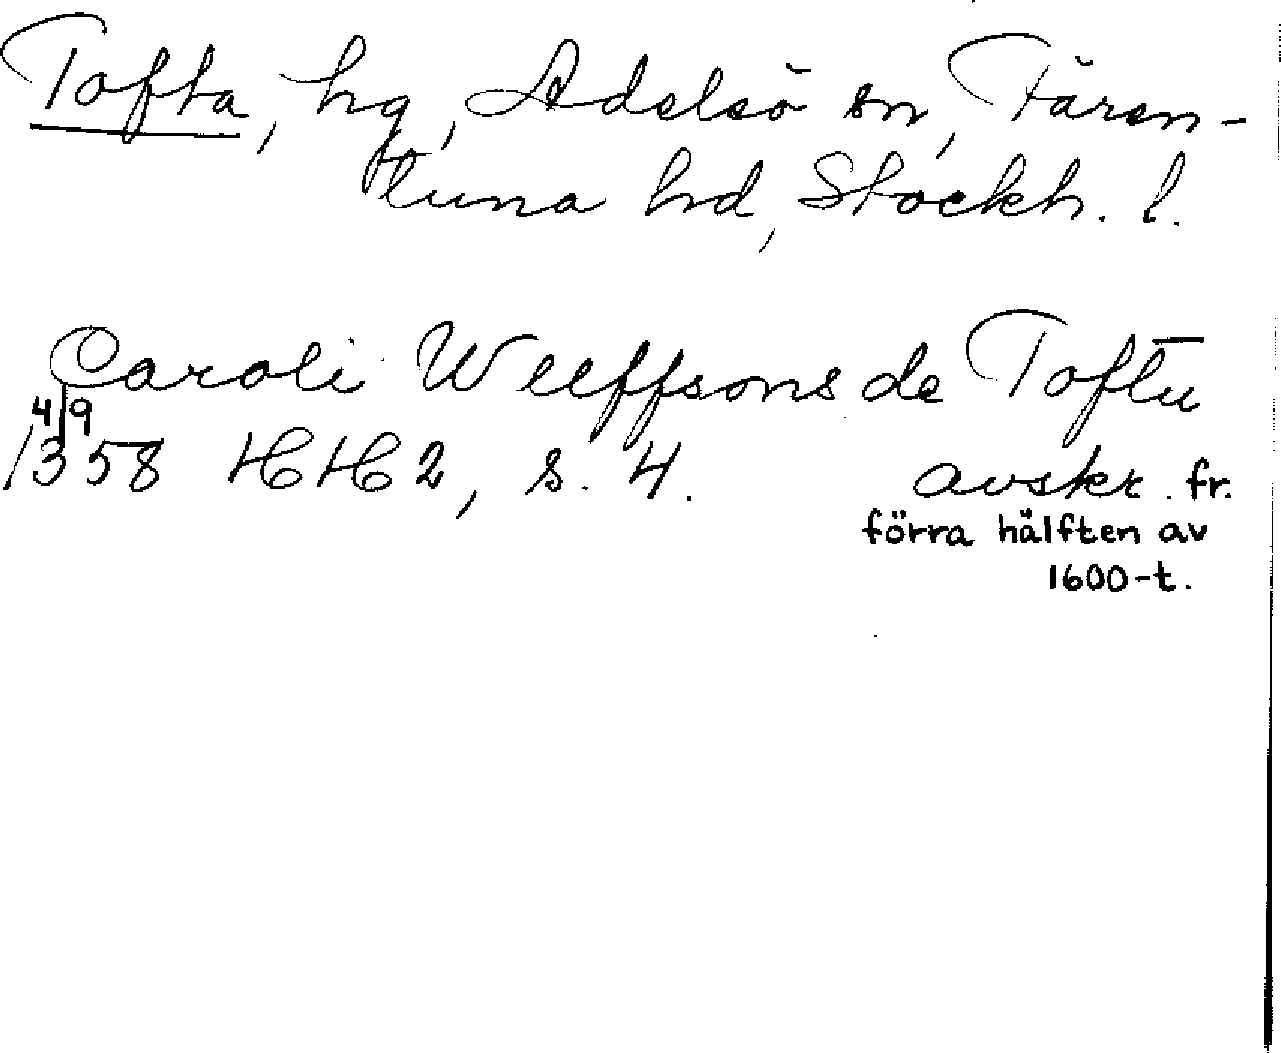 Tofta, hg, Adelsö sn, Fären-
tuna hd, Stockh. l.
Caroli Wleffsons de Toftu
4/9
1358 HH 2, s. 4. avskr. fr.
förra hälften av
1600-t.